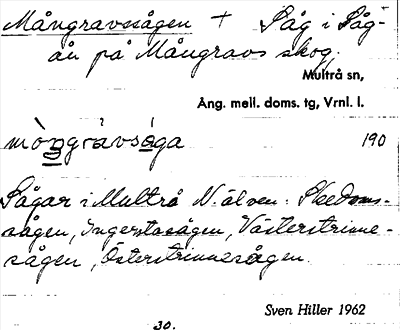 Mångravssågen + Såg i Såg-
ån på Mångravs skog.
Multrå sn,
Ång. mell. doms. tg, Vrnl. l.
mòngràvsága 190
Sågar i Multrå N. älven: Skedoms-
sågen, Ingerstasågen, Västerstrinne-
sågen, Österstrinnesågen.
Sven Hiller 1962
30.